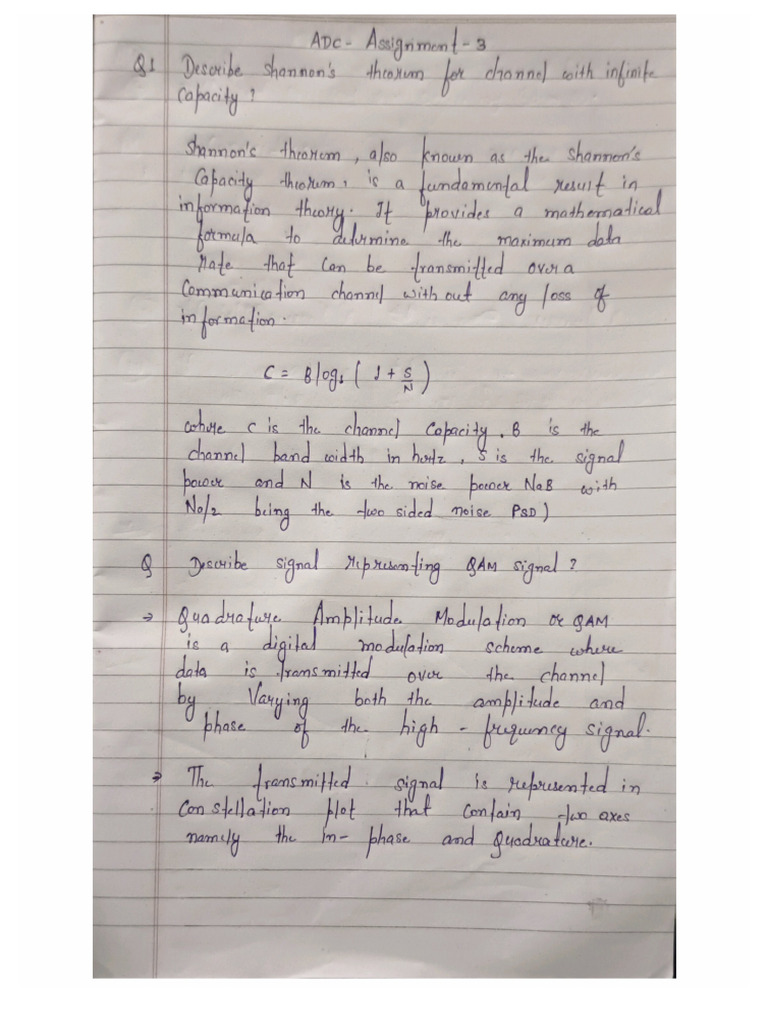 ADC - Assignment - 3
Q1 Describe Shannon's theorum for channel with infinite
Capacity?
Shannon's theorum, also known as the Shannon's
Capacity theorum, is a fundamental result in
information theory. It provides a mathematical
formula to determine the maximum data
rate that can be transmitted over a
Communication channel with out any loss of
information.
C = B log₂ ( 1 + S/N )
where C is the channel Capacity. B is the
channel band width in hertz, S is the signal
power and N is the noise power NoB with
No/2 being the two sided noise PSD)
Q Describe signal representing QAM signal?
→ Quadrature Amplitude Modulation or QAM
is a digital modulation scheme where
data is transmitted over the channel
by Varying both the amplitude and
phase of the high - frequency signal.
→ The transmitted signal is represented in
Constellation plot that contain two axes
namely the in- phase and Quadrature.